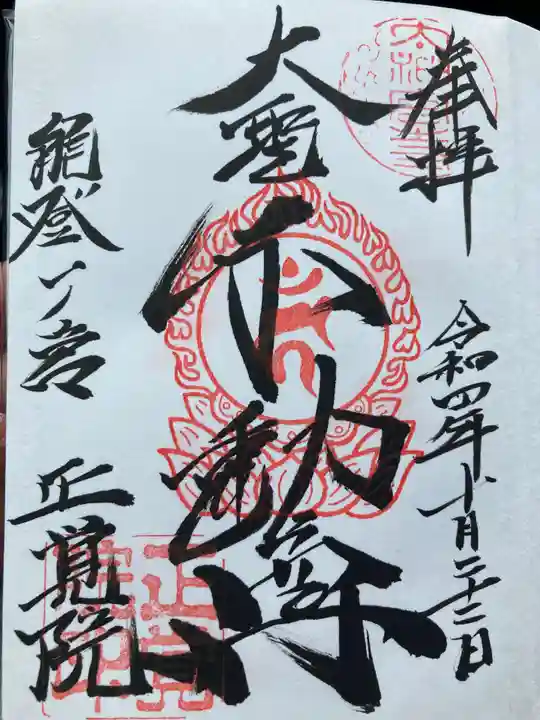 奉拝
令和四年十月二十二日
大聖不動尊
能登一ノ宮
正覺院